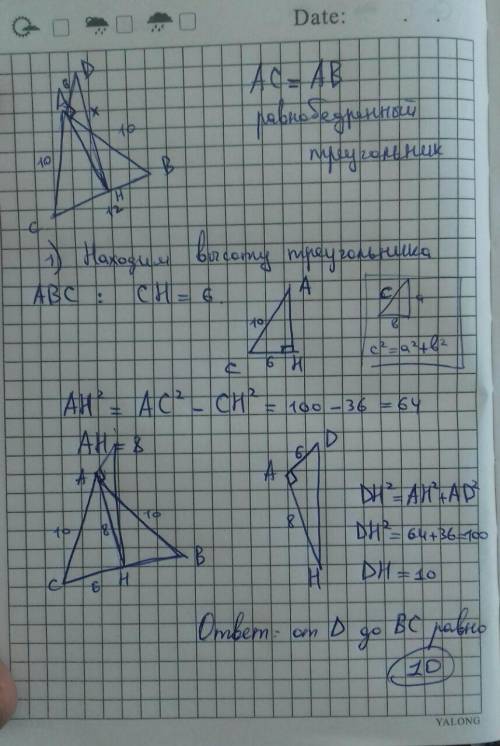 Date: . .
D
6
A
x
10
10
B
H
12
C
AC = AB
равнобедренный
треугольник
1) Находим высоту треугольника
ABC : CH = 6.
A
10
C 6 H
c
8
c² = a² + b²
AH² = AC² - CH² = 100 - 36 = 64
AH = 8
A
10
8
10
C
6
H
B
6
D
A
8
H
DH² = AH² + AD²
DH² = 64 + 36 = 100
DH = 10
Ответ: от D до BC равно
10
YALONG